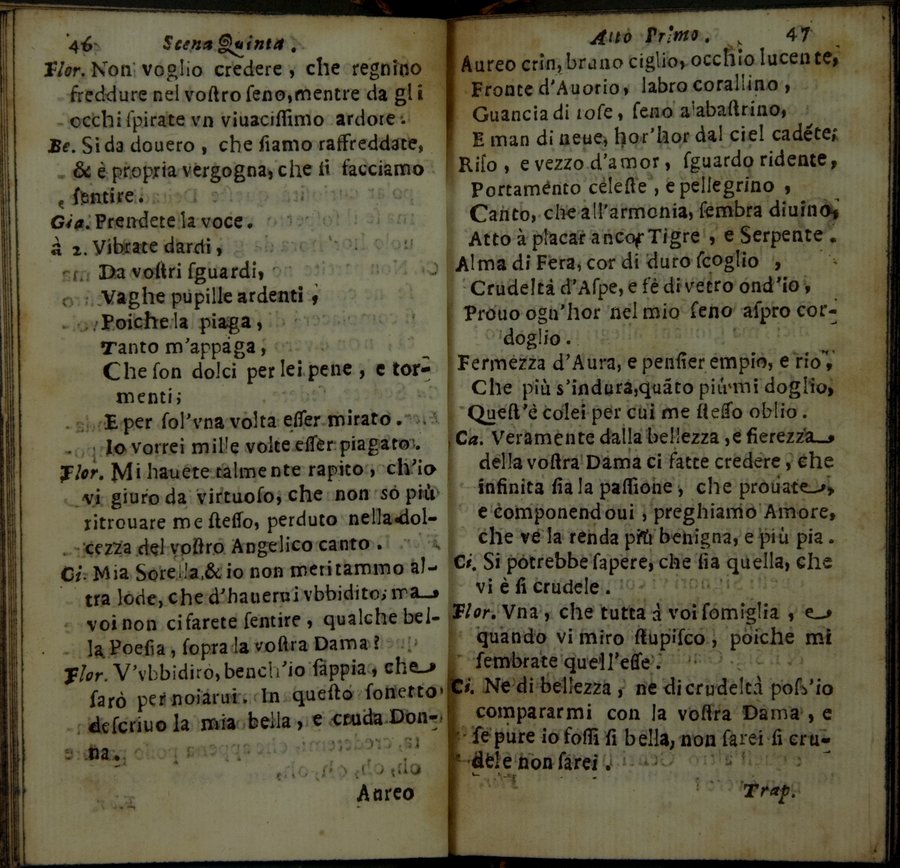 46 Scena Quinta.
Flor. Non voglio credere, che regnino
freddure nel voſtro ſeno, mentre da gli
occhi ſpirate vn viuaciſſimo ardore.
Be. Si da douero, che ſiamo raffreddate,
& è propria vergogna, che ſi facciamo
ſentire.
Gia. Prendete la voce.
à 2. Vibrate dardi,
Da voſtri ſguardi,
Vaghe pupille ardenti,
Poiche la piaga,
Tanto m'appaga,
Che ſon dolci per lei pene, e tor-
menti;
E per ſol'vna volta eſſer mirato.
Io vorrei mille volte eſſer piagato.
Flor. Mi hauete talmente rapito, ch'io
vi giuro da virtuoſo, che non sò più
ritrouare me ſteſſo, perduto nella dol-
cezza del voſtro Angelico canto.
Ci. Mia Sorella, & io non meritammo al-
tra lode, che d'hauerui vbbidito; ma
voi non ci farete ſentire, qualche bel-
la Poeſia, ſopra la voſtra Dama?
Flor. V'vbbidirò, bench'io ſappia, che
ſarò per noiarui. In queſto ſonetto
deſcriuo la mia bella, e cruda Don-
na.
Aureo
Atto Primo. 47
Aureo crin, bruno ciglio, occhio lucente,
Fronte d'Auorio, labro corallino,
Guancia di roſe, ſeno alabaſtrino,
E man di neue, hor'hor dal ciel cadẽte;
Riſo, e vezzo d'amor, ſguardo ridente,
Portamento celeſte, e pellegrino,
Canto, che all'armonia, ſembra diuino,
Atto à placar ancor Tigre, e Serpente.
Alma di Fera, cor di duro ſcoglio,
Crudeltà d'Aſpe, e fè di vetro ond'io,
Prouo ogn'hor nel mio ſeno aſpro cor-
doglio.
Fermezza d'Aura, e penſier empio, e rio,
Che più s'indura, quãto più mi doglio,
Queſt'è colei per cui me ſteſſo oblio.
Ca. Veramente dalla bellezza, e fierezza
della voſtra Dama ci fatte credere, che
infinita ſia la paſſione, che prouate,
e componendoui, preghiamo Amore,
che ve la renda più benigna, e più pia.
Ci. Si potrebbe ſapere, che ſia quella, che
vi è ſi crudele.
Flor. Vna, che tutta à voi ſomiglia, e
quando vi miro ſtupiſco, poiche mi
ſembrate quell'eſſe.
Ci. Ne di bellezza, ne di crudeltà poſs'io
compararmi con la voſtra Dama, e
ſe pure io foſſi ſi bella, non ſarei ſi cru-
dele non ſarei.
Trap.